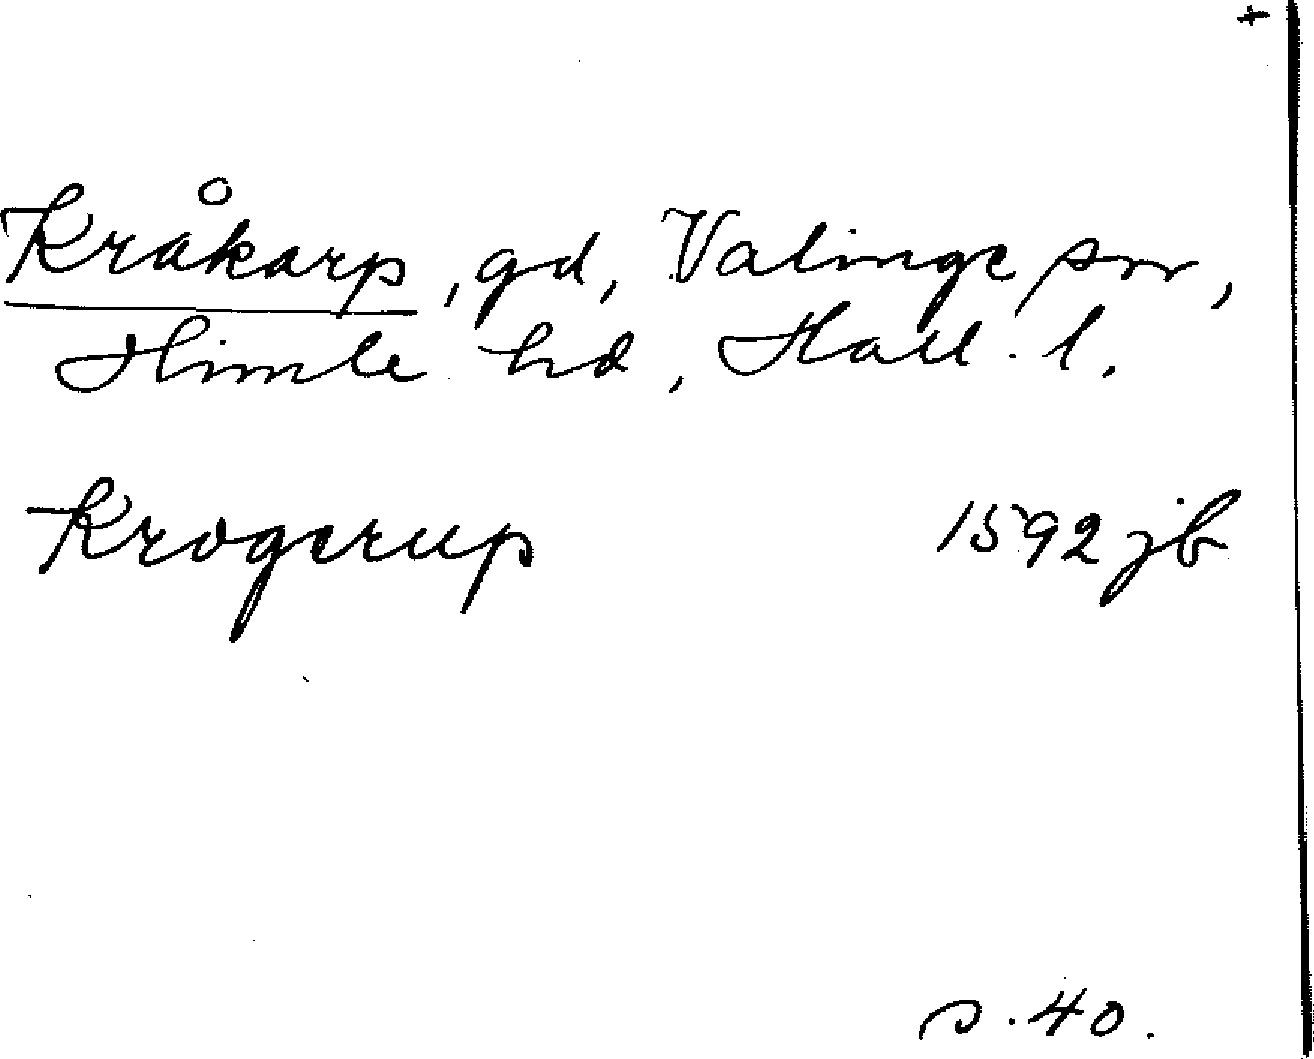 +
Kråkarp, gd, Valinge sn,
Himle hd, Hall. l.
Krogerup 1592 jb
s. 40.